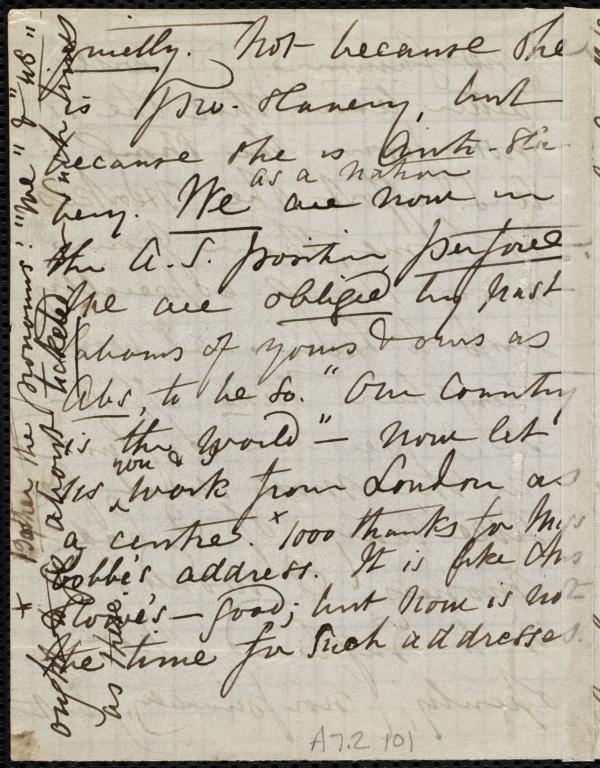 quietly. Not because she
is Pro-slavery, but
because she is Anti-sla-
very. We as a nation are now in
the A.S. position perforce
We are obliged by past
labours of yours & ours as
Abs, to be so. "Our Country
is the World" — now let
us, you & I, work from London as
a centre. × 1000 thanks for Miss
Cobbe's address. It is like Mrs
Stowe's — good; but now is not
the time for such addresses.
× Bother the pronouns: "We" & "us"
ought to be about ticketed, such times
as these
A 7.2 101